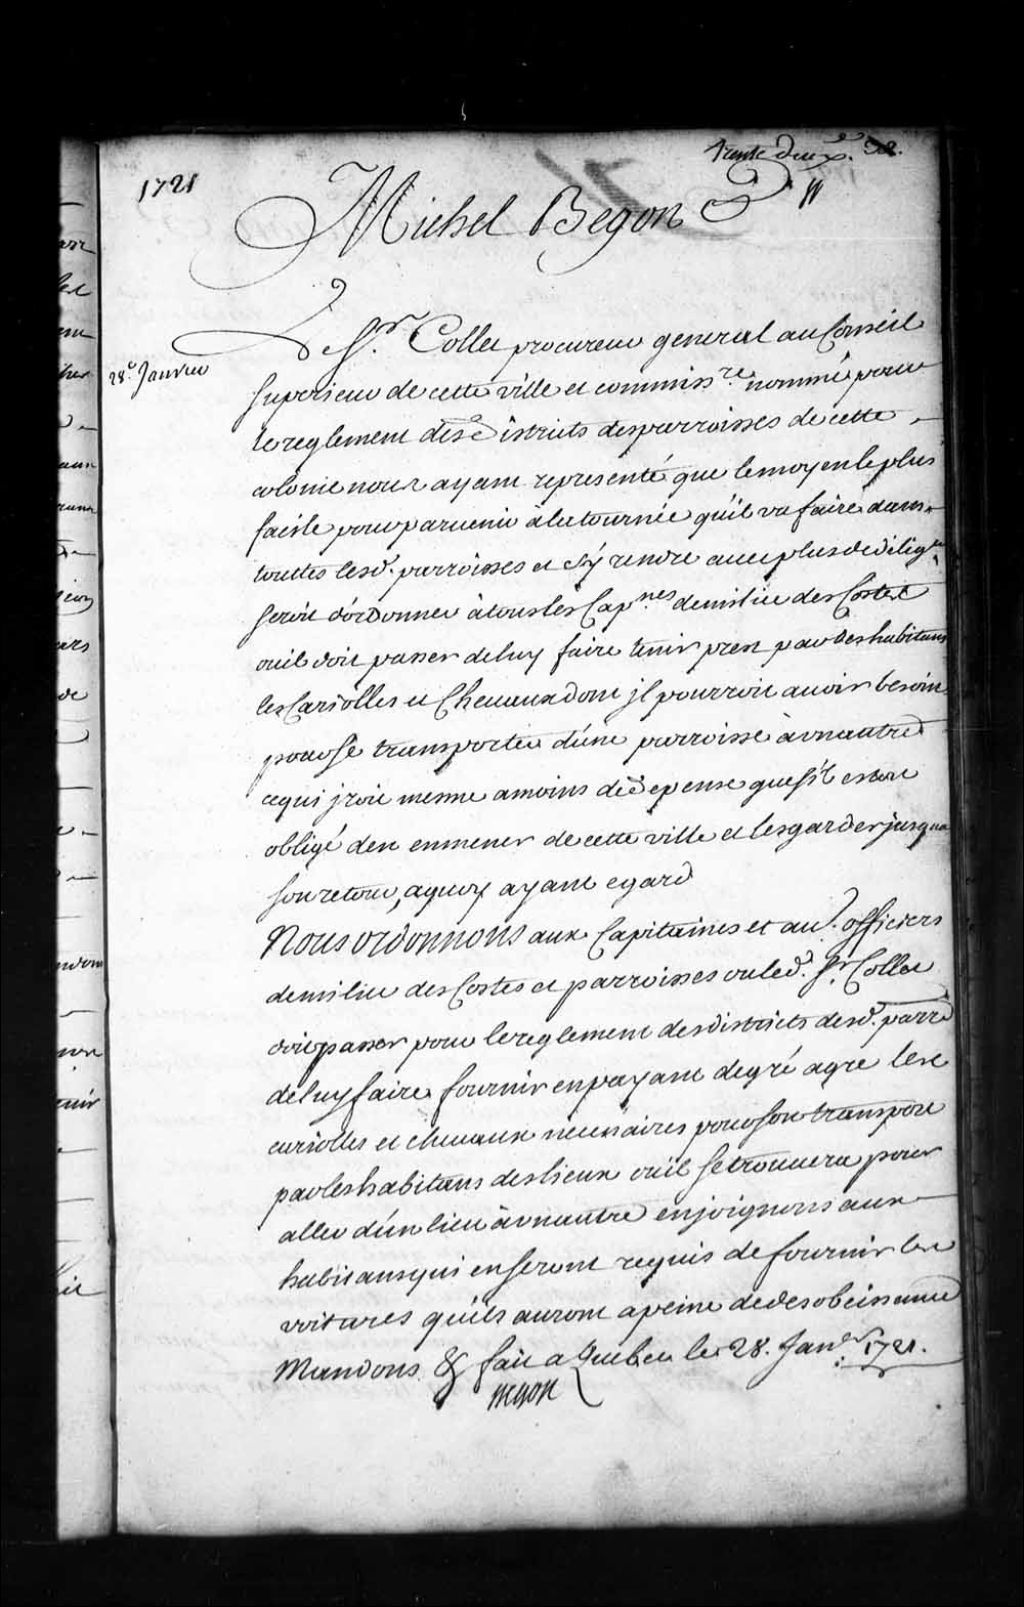 trente deux. 32.
1721
Michel Begon &
28e. Janvier
Le Sr. Collet procureur general au Conseil
Superieur de cette ville et commissre. nommé pour
le reglement des districts des parroisses de cette
colonie nous ayant representé que le moyen le plus
facile pour parvenir à la tournée qu'il va faire dans
touttes lesd. parroisses et s'y rendre avec plus de diligce
seroit d'ordonner à tous les Capnes. de milice des Costes
ou il doit passer de luy faire tenir prest par des habitans
les Cariolles et Chevaux dont jl pourroit avoir besoin
pour se transporter d'une parroisse à vn autre
ce qui jroit mesme a moins de depense que s'il estoit
obligé d'en enmener de cette ville et les garder jusqua
son retour, a quoy ayant egard
Nous ordonnons aux Capitaines et au. officiers
de milice des Costes et parroisses ou led. Sr. Collet
doit passer pour le reglement des districts desd. parr.
de luy faire fournir en payant de gré a gré les
cariolles et chevaux necessaires pour son transport
par les habitans des lieux ou il se trouvera pour
aller d'un lieu à vn autre enjoignons aux
habitans qui en seront requis de fournir les
voitures qu'ils auront a peine de desobeissance
Mandons & fait a Quebec le 28. Janer. 1721.
Begon